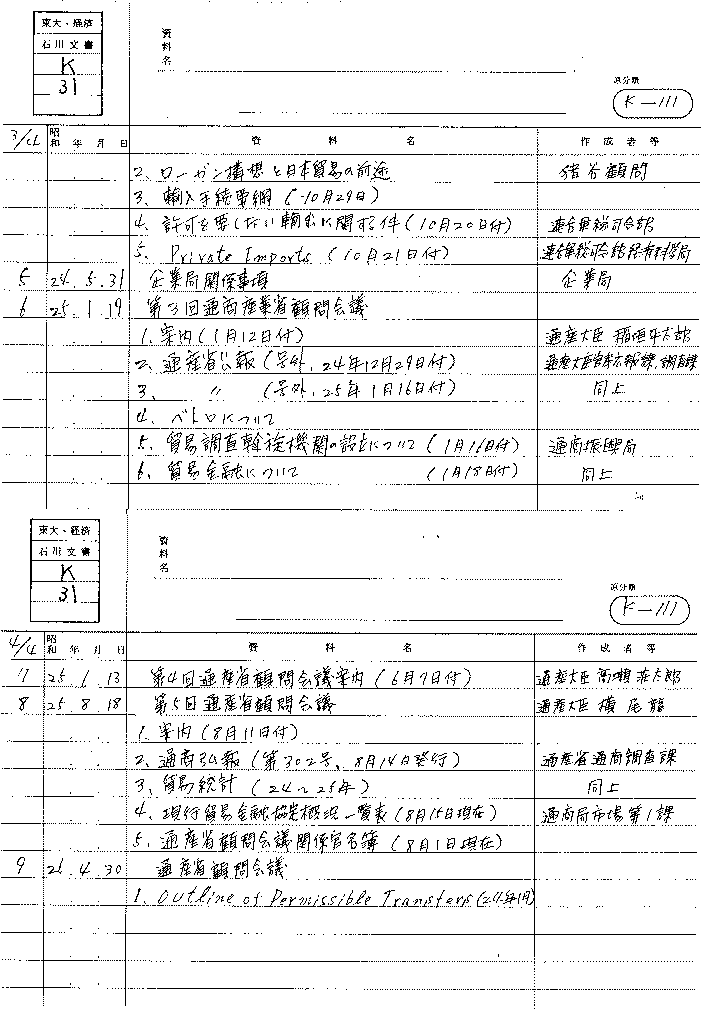 東大・経済
石川文書
K
31
資料名
原分類
K-111
3/4 昭和 年 月 日 資料名 作成者等
2. ローガン構想と日本貿易の前途 顧問
3. 輸入手続要綱（10月29日）
4. 許可を要しない輸出に関する件（10月20日付） 連合軍総司令部
5. Private Imports（10月21日付） 連合軍総司令部
5 24.5.31 企業局関係事項 企業局
6 25.1.19 第3回通商産業省顧問会議
1. 案内（1月12日付） 通産大臣 稲垣平太郎
2. 通産省公報（号外、24年12月29日付） 通産大臣官房広報課、調査課
3. 〃（号外、25年1月16日付） 同上
4. ベトロについて
5. 貿易調査斡旋機関の設立について（1月16日付） 通商振興局
6. 貿易金融について（1月18日付） 同上
東大・経済
石川文書
K
31
資料名
原分類
K-111
4/4 昭和 年 月 日 資料名 作成者等
7 25.1.13 第4回通産省顧問会議案内（6月7日付） 通産大臣 高瀬荘太郎
8 25.8.18 第5回通産省顧問会議 通産大臣 横尾龍
1. 案内（8月11日付）
2. 通商弘報（第302号、8月14日発行） 通産省通商調査課
3. 貿易統計（24〜25年） 同上
4. 現行貿易金融協定概況一覧表（8月15日現在） 通商局市場第1課
5. 通産省顧問会議関係官名簿（8月1日現在）
9 26.4.30 通産省顧問会議
1. Outline of Permissible Transfers（24年1月）